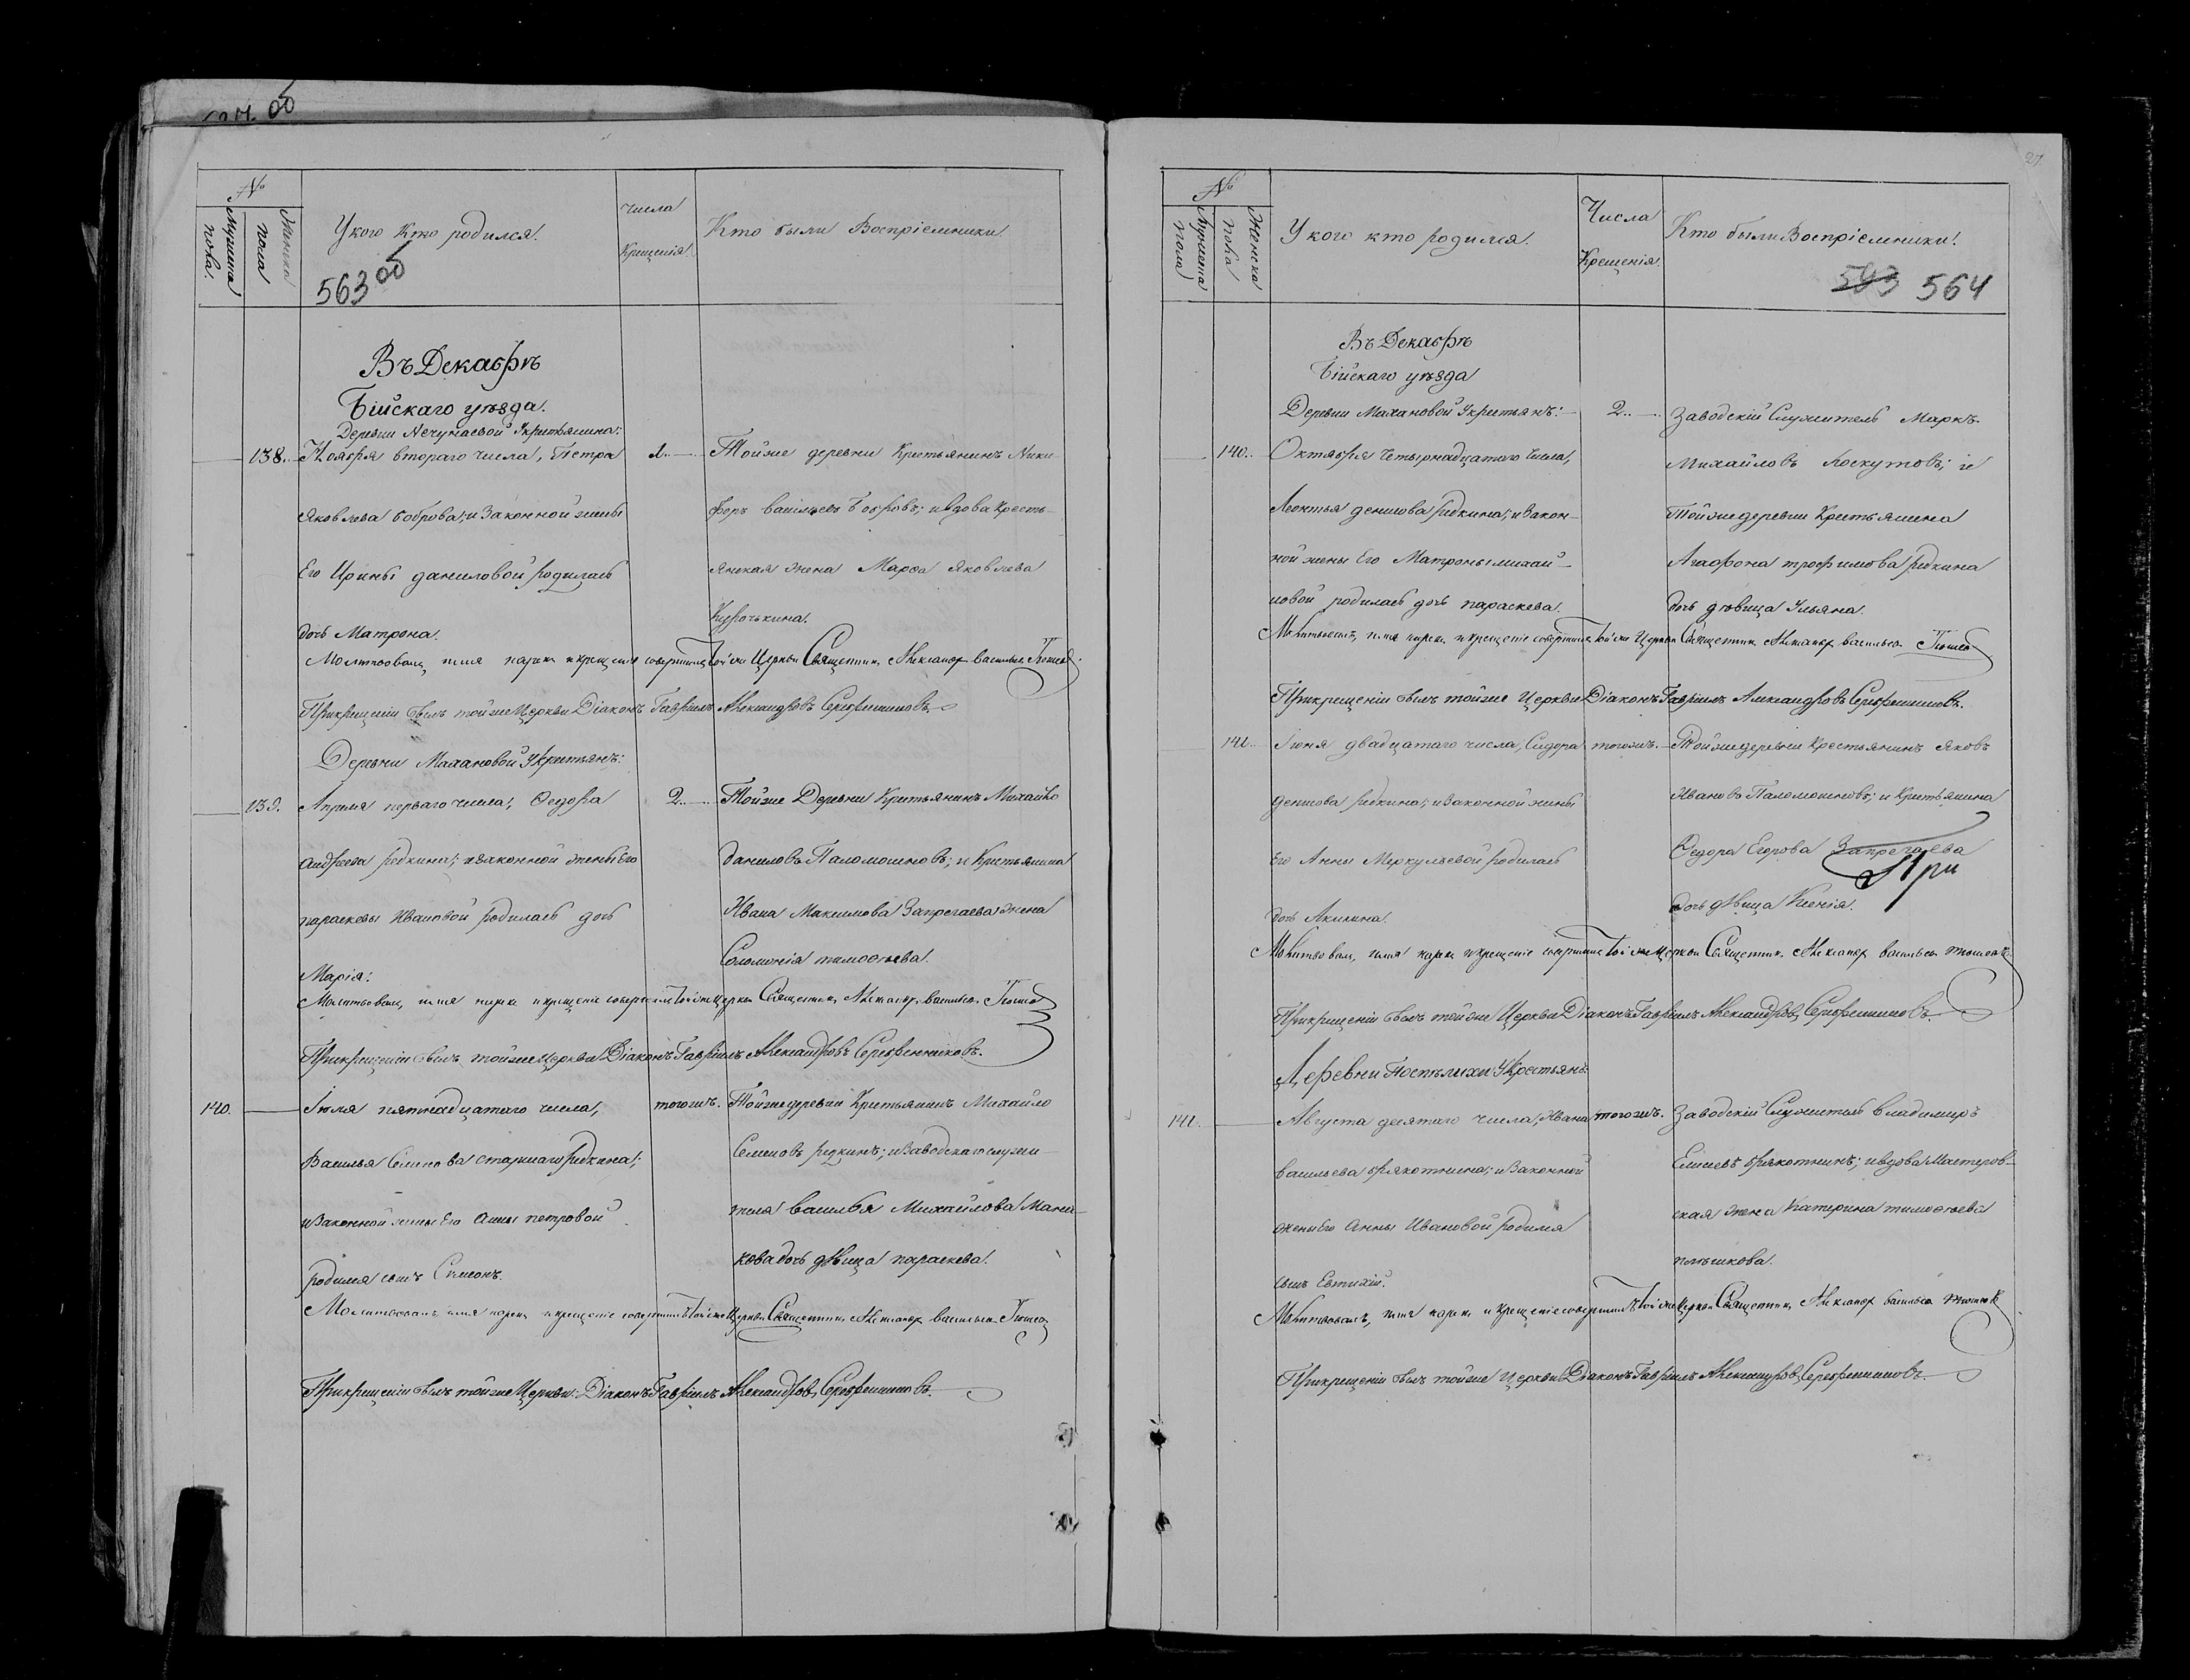 об
№
Мужска пола.
Женска пола
У кого Кто родился.
числа
Крещенія.
Кто были Воспріемники
563 об
Въ Декабрѣ
Бійскаго уѣзда.
Деревни Нечунаевой Укрестьянина:
138. Ноября втораго числа, Петра
Яковлева боброва; и Законной жены
Его Ирины даниловой родилась
дочь Матрона.
1. Тойже деревни Крестьянинъ Ники-
форъ васильевъ Бобровъ; и вдова Кресть-
янская жена Марѳа Яковлева
Курочькина.
Молитвовалъ, имя нарекъ и крещеніе совершилъ тойже Церкви Священникъ Александръ васильевъ
При крещеніи былъ тойже Церкви Діаконъ Гавріилъ Александровъ Серебренниковъ.
Деревни Махановой Укрестьянъ:
139. Апреля перваго числа, Ѳедора
андреева редкина; и законной жены Его
параскевы Ивановой родилась дочь
Марія:
2. Тойже Деревни Крестьянинъ Михайло
даниловъ Паломошновъ; и Крестьянина
Ивана Максимова Запрегаева жена
Соломонія тимоѳеева.
Молитвовалъ, имя нарекъ и крещеніе совершилъ тойже Церкви Священникъ Александръ васильевъ
При крещеніи былъ тойже Церкви Діаконъ Гавріилъ Александровъ Серебренниковъ.
140. Іюля пятнадцатаго числа,
Василья Семенова старшаго редкина;
и Законной жены Его анны петровой
родился сынъ Симеонъ.
тогожъ. Тойже деревни Крестьянинъ Михайло
Семеновъ редкинъ; и Заводскаго служи-
теля василья Михайлова Мани-
кова дочь дѣвица параскева.
Молитвовалъ имя нарекъ и крещеніе совершилъ тойже Церкви Священникъ Александръ васильевъ
При крещеніи былъ тойже Церкви: Діаконъ Гавріилъ Александровъ Серебренниковъ.
27.
№
Мужска пола
Женска пола
У кого кто родился.
Числа
Крещенія.
Кто были Воспріемники.
563 564
Въ Декабрѣ
Бійскаго уѣзда
Деревни Махановой Укрестьянъ:
140. Октября четырнадцатаго числа,
Леонтья денисова редкина; и закон-
ной жены Его Матроны михай-
ловой родилась дочь параскева.
2. Заводскій Служитель Маркъ
Михайловъ Лоскутовъ; и
Тойже деревни Крестьянина
Агафона трофимова редкина
дочь дѣвица Ульяна.
Молитвовалъ, имя нарекъ и крещеніе совершилъ тойже Церкви Священникъ Александръ васильевъ
При крещеніи былъ тойже Церкви Діаконъ Гавріилъ Александровъ Серебренниковъ.
141. Іюня двадцатаго числа, Сидора
денисова редкина; и законной жены
Его Анны Меркульевой родилась
дочь Акилина.
тогожъ. Тойже деревни Крестьянинъ Яковъ
Ивановъ Паломошновъ; и Крестьянина
Ѳедора Егорова Запрегаева
дочь дѣвица Ксенія.
Молитвовалъ, имя нарекъ и крещеніе совершилъ тойже Церкви Священникъ Александръ васильевъ
При крещеніи былъ тойже Церкви Діаконъ Гавріилъ Александровъ Серебренниковъ.
Деревни Поспѣлихи Укрестьянъ:
141. Августа десятаго числа, Ивана
васильева брякотнина; и Законной
жены Его Анны Ивановой родился
сынъ Евтихій.
тогожъ. Заводскій Служитель владимиръ
Елисеевъ брякотнинъ; и вдова Мастеров-
ская жена Катерина тимоѳеева
Молитвовалъ, имя нарекъ и крещеніе совершилъ тойже Церкви Священникъ Александръ васильевъ
При крещеніи былъ тойже Церкви Діаконъ Гавріилъ Александровъ Серебренниковъ.